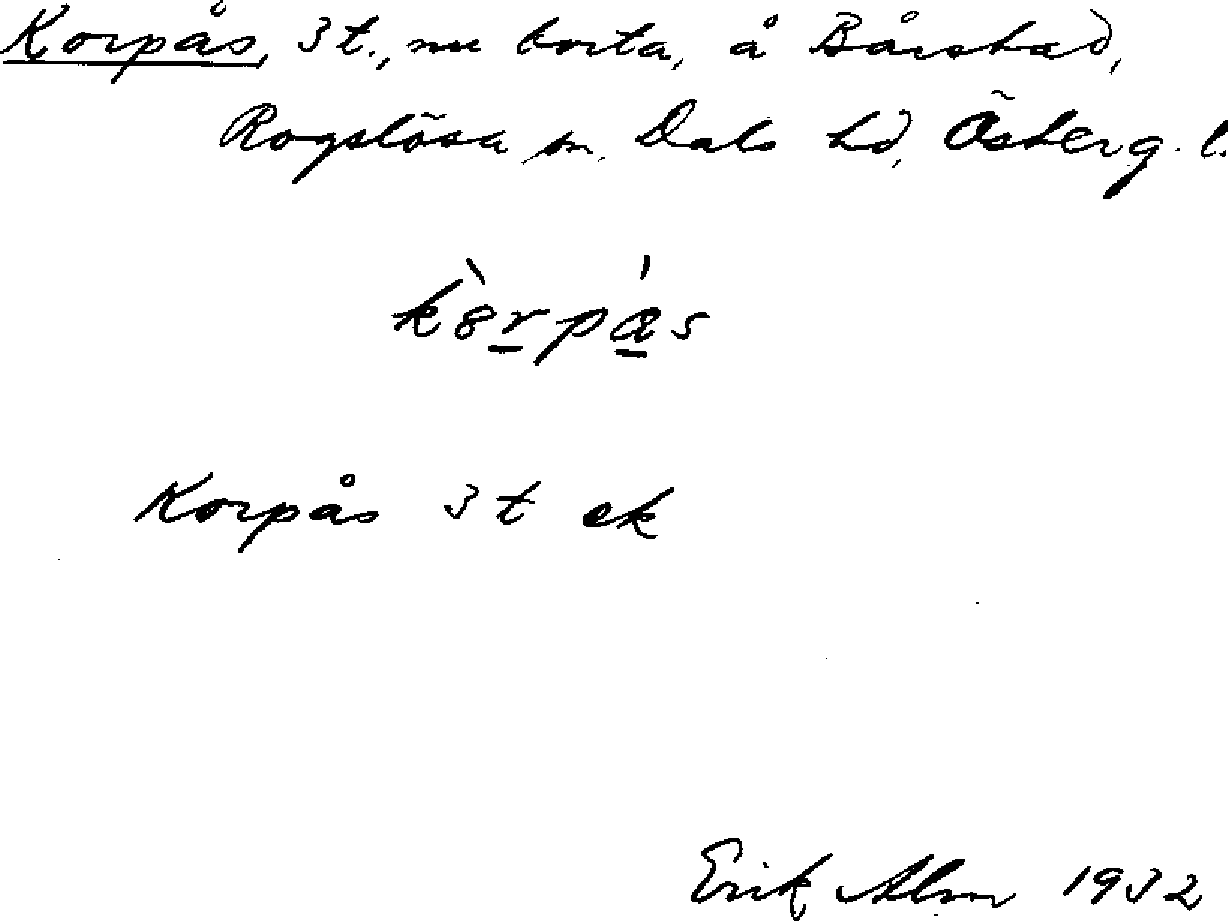 Korpås, 3 t., nu borta, å Bårstad,
Rogslösa sn, Dals hd, Österg. l.
kòrpás
Korpås 3 t ek
Erik Alm 1932